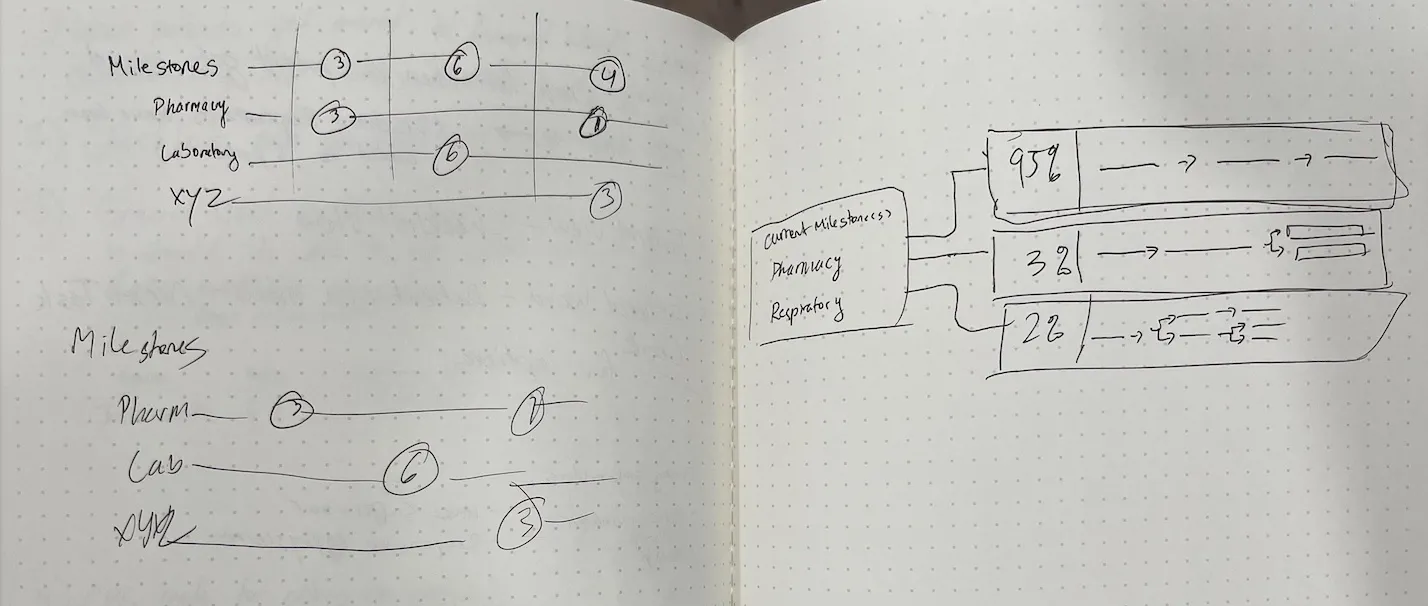 Milestones 3 6 4
Pharmacy 3 1
Laboratory 6
XYZ 3
Milestones
Pharm 3 1
Lab 6
XYZ 3
Current Milestone(s)
Pharmacy
Respiratory
95%
3%
2%